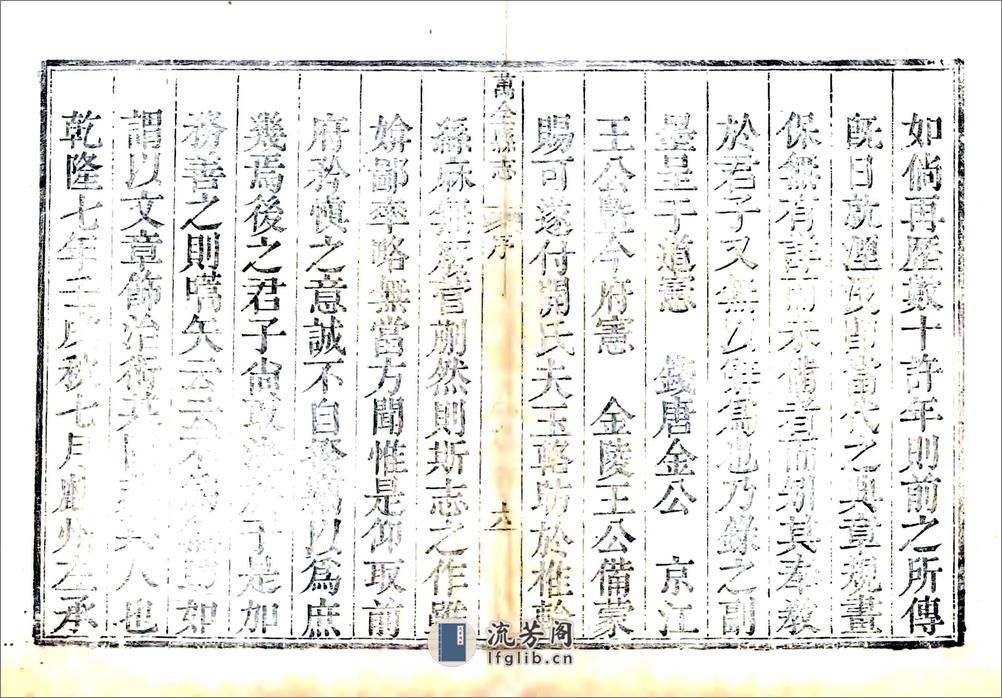 如倘再歷數十許年則前之所傳
既日就湮沒卽當代之典章規畫
保無有詳而未備者而矧其奉教
於君子又無以辭爲也乃錄之副
墨呈于道憲 錢唐金公 京江
王公曁今府憲 金陵王公備蒙
賜可遂付開氏夫玉輅昉於椎輪
絲麻無棄菅蒯然則斯志之作雖
媕鄙率略無當方聞惟是仰取前
府矜慎之意誠不自揆竊以爲庶
幾焉後之君子尙攷 于是加
務善之則嚆矢云 如
謂以文章飾治術其 人也
乾隆七年壬戌秋七月 左承
萬全縣志 序 六
流芳阁
lfglib.cn